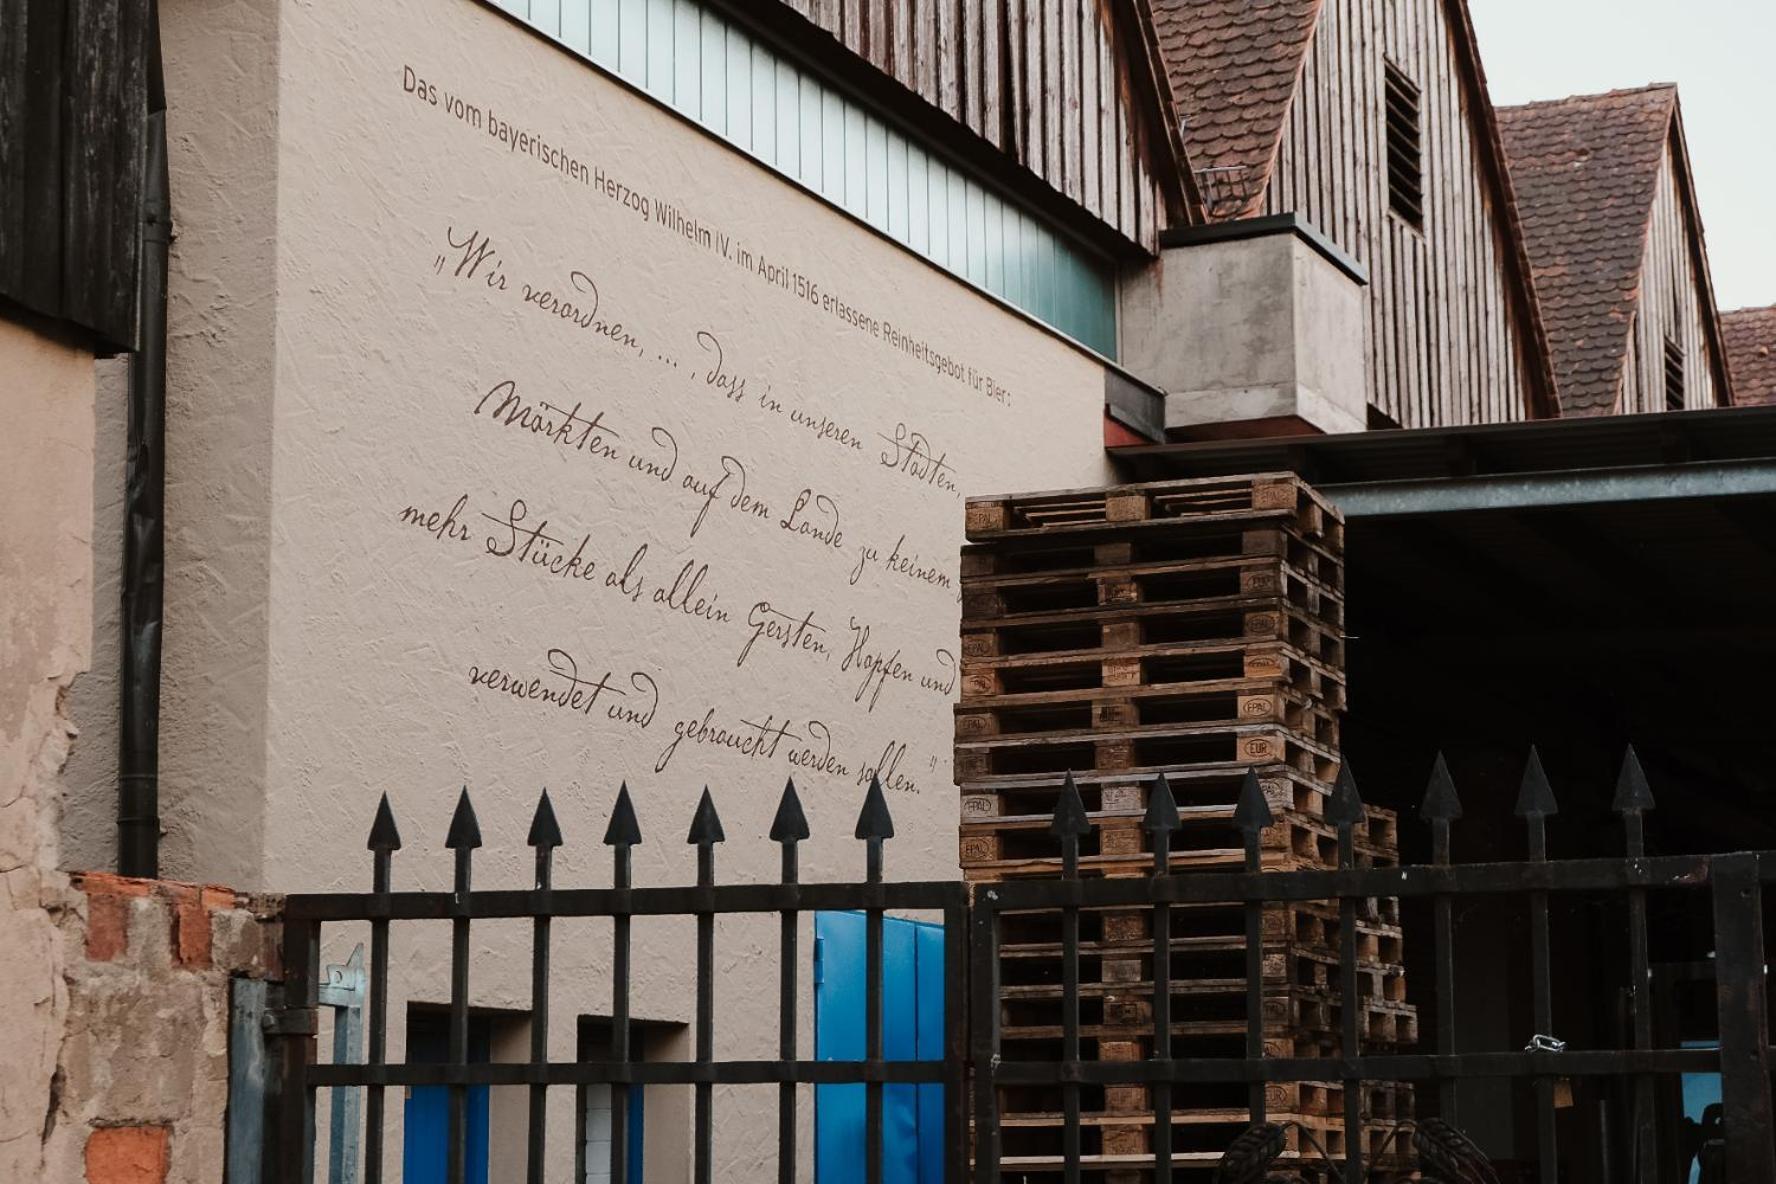 Das vom bayerischen Herzog Wilhelm IV. im April 1516 erlassene Reinheitsgebot für Bier:
„Wir verordnen, ... , dass in unseren Städten,
Märkten und auf dem Lande zu keinem
mehr Stücke als allein Gersten, Hopfen und
verwendet und gebraucht werden sollen."
EPAL
EPAL
EUR
EPAL
EPAL